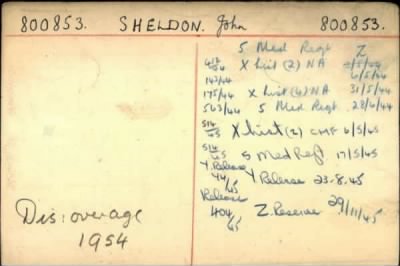 800853. SHELDON. John 800853.
5 Med Regt Z
X list (2) NA 2/5/44
143/44 6/5/44
175/44 X list (4) NA 31/5/44
563/44 5 Med Regt 28/6/44
514/45 X list (2) CMF 6/5/45
514/45 5 Med Regt 17/5/45
Y. Release 44/45 Y Release 23.8.45
Release 404/45 Z. Reserve 29/11/45
Dis: overage
1954